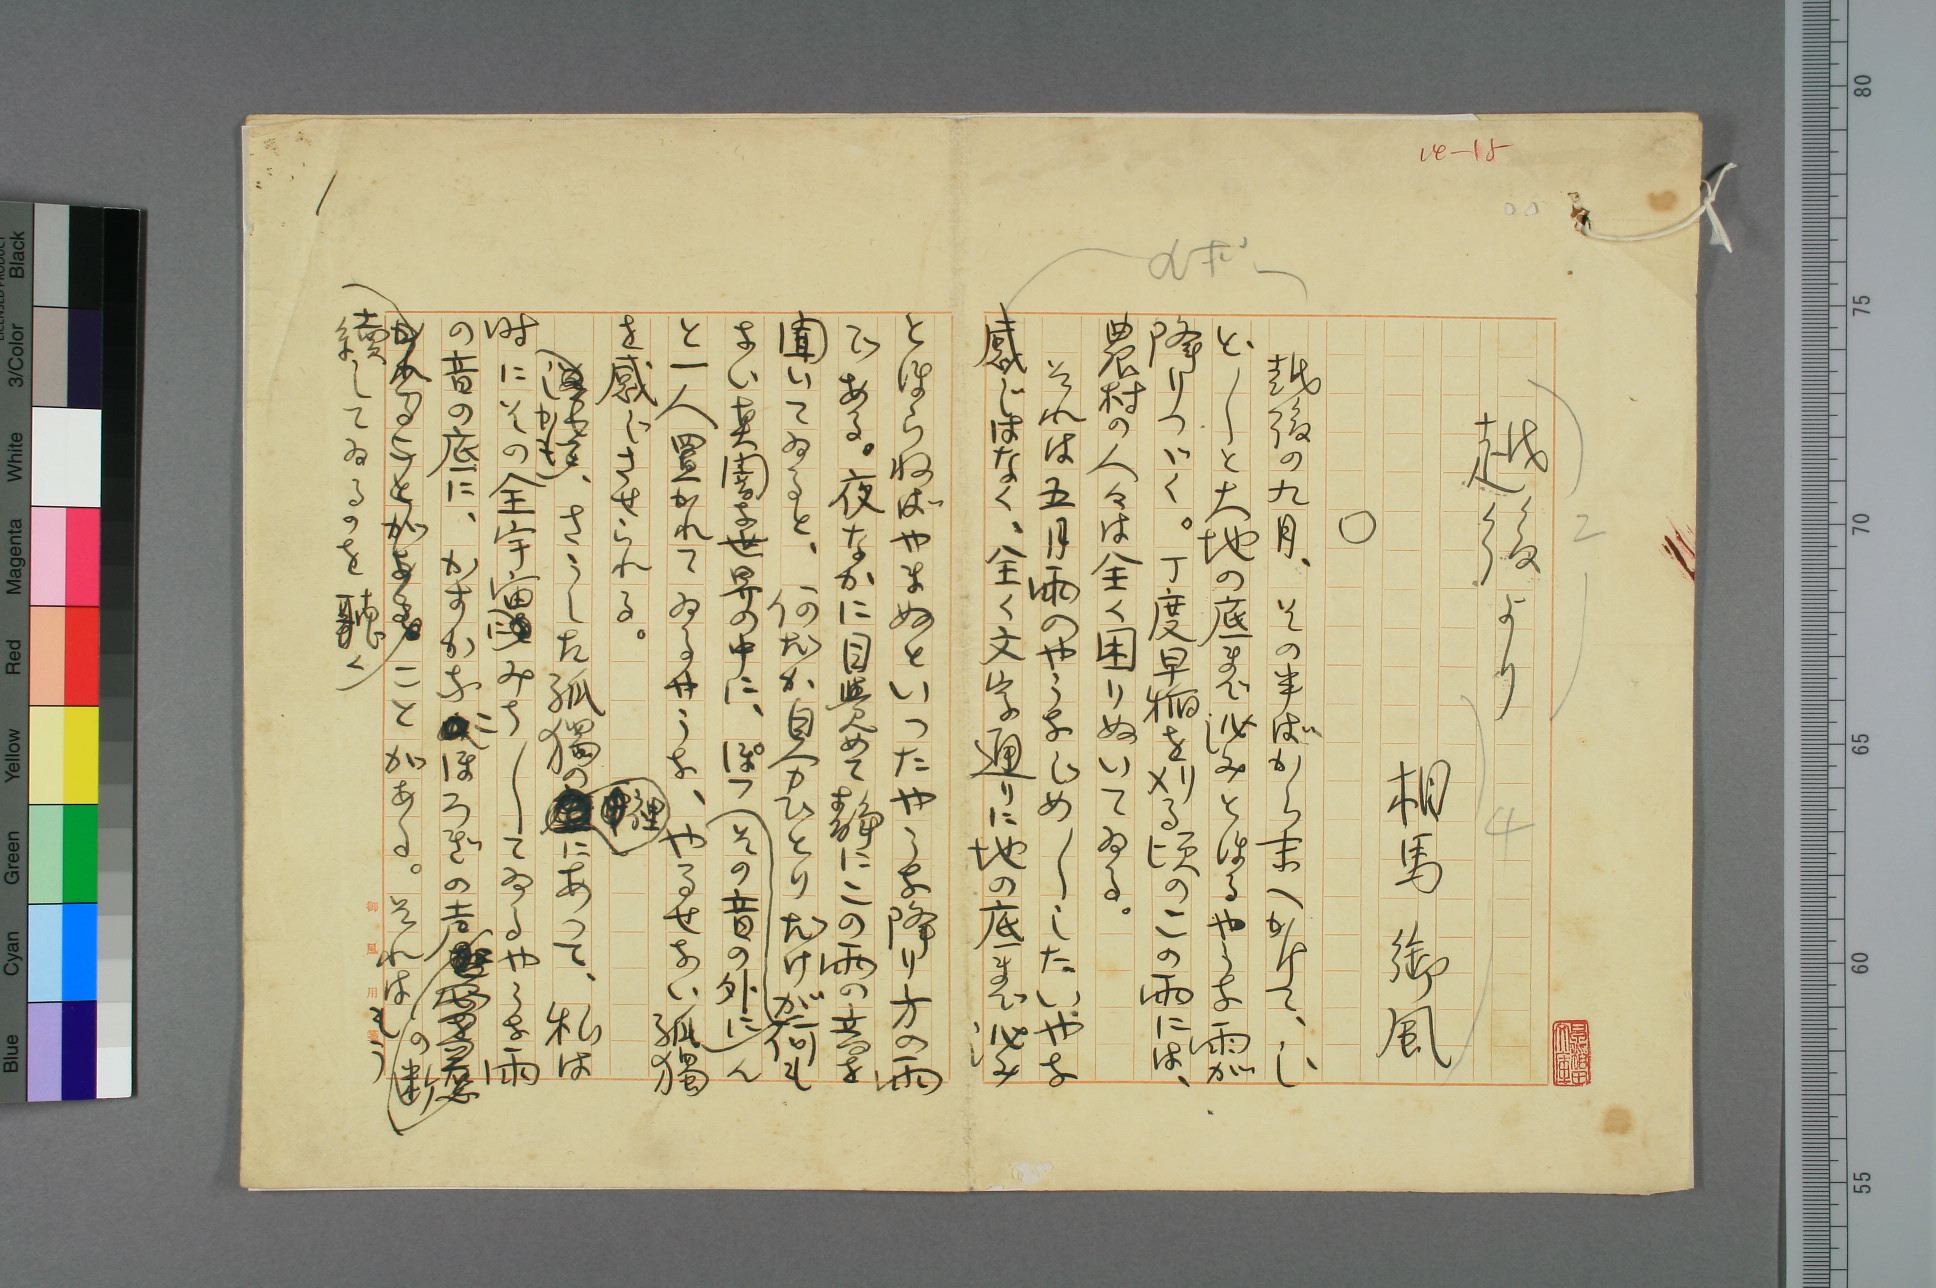 越後より
相馬御風
○
越後の九月、その半ばから末へかけて、じ
と〳〵と大地の底まで泌みとほるやうな雨が
降りつゞく。丁度早稲を刈る頃のこの雨には、
農村の人々は全く困りぬいてゐる。
それは五月雨のやうなじめ〳〵したいやな
感じはなく、全く文字通りに地の底まで泌み
とほらねばやまぬといつたやうな降り方の雨
である。夜なかに目覚めて静にこの雨の音を
聞いてゐると、何だか自分ひとりだけが何も
ない真闇な世界の中に、ぽつんその音の外に
と一人置かれてゐるやうな、やるせない孤独
を感じさせられる。
しかも、さうした孤独の裡にあつて、私は
時にその全宇宙にみち〳〵てゐるやうな雨
の音の底に、かすかなこほろぎの声の断
続してゐるのを聴く
ことがある。それはもう
御風用箋
ポ
2
4
80
75
70
65
60
55
Black
3/Color
White
Magenta
Red
Yellow
Green
Cyan
Blue